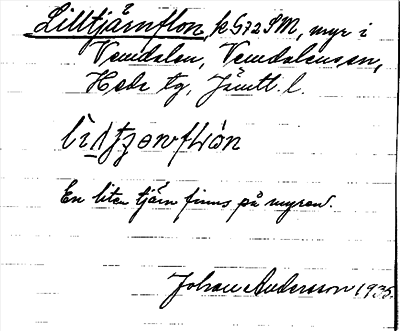 Lilltjärnflon, k G72 SM, myr i
Vemdalen, Vemdalens sn,
Hede tg, Jämtl. l.
En liten tjärn finns på myren.
Johan Andersson 1935.